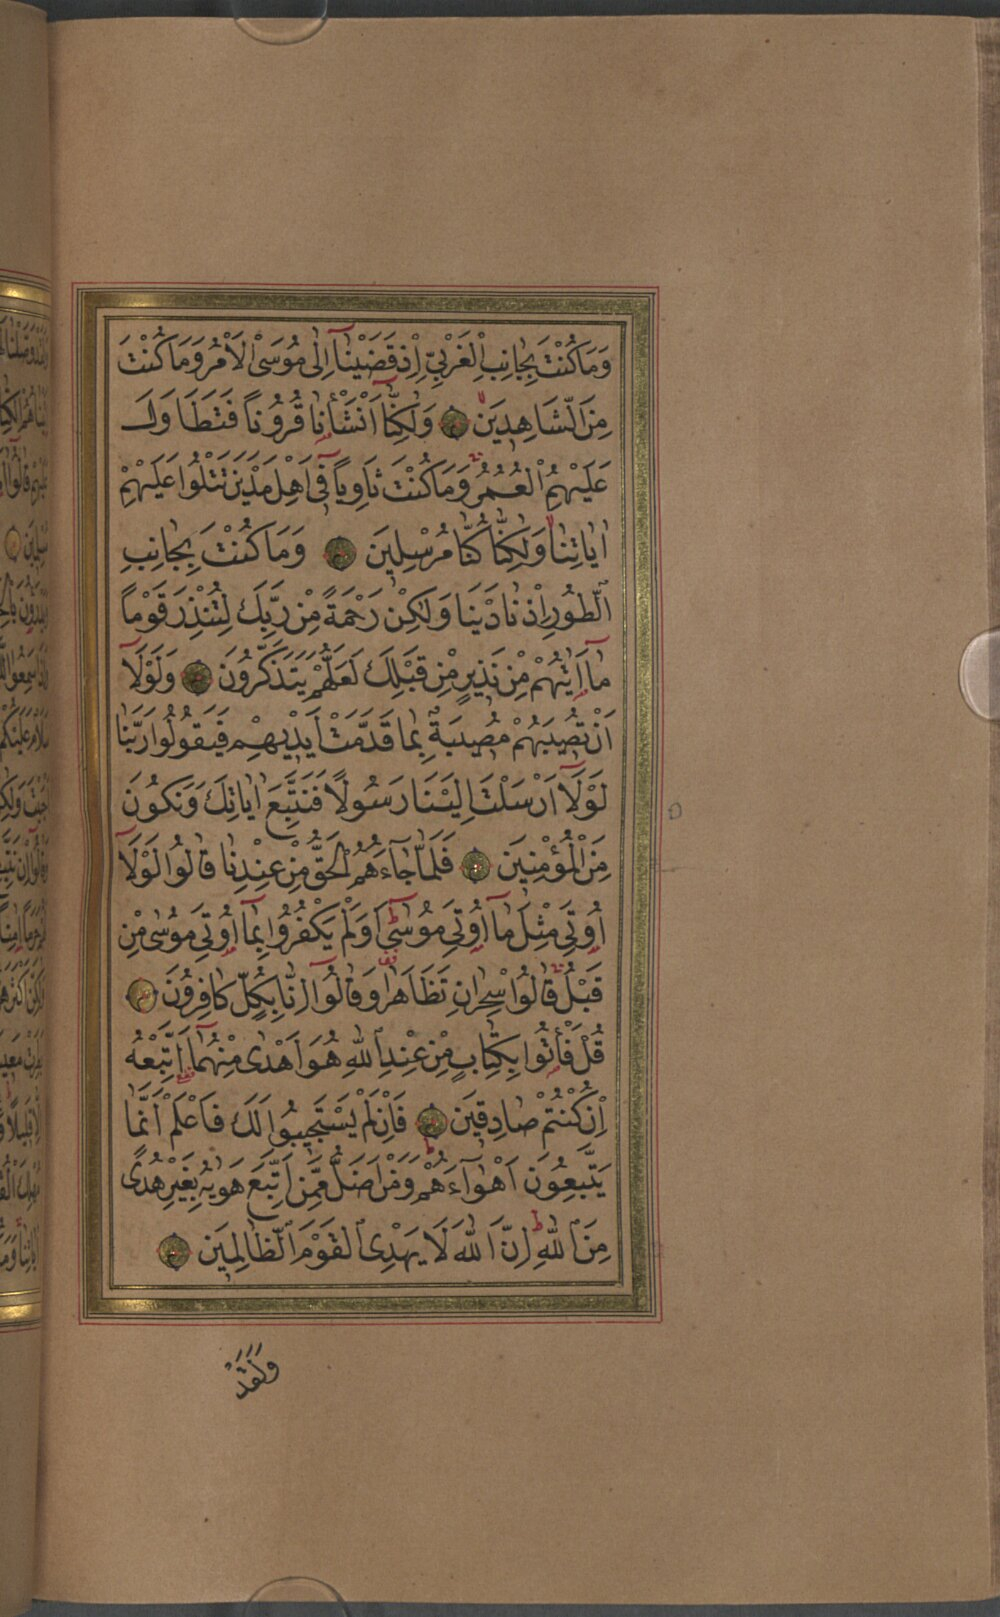 وَمَا كُنْتَ بِجَانِبِ الْغَرْبِيِّ اِذْ قَضَيْنَٓا اِلٰى مُوسَى الْاَمْرَ وَمَا كُنْتَ
مِنَ الشَّاهِدِينَ وَلٰكِنَّٓا اَنْشَأْنَا قُرُونًا فَتَطَاوَلَ
عَلَيْهِمُ الْعُمُرُ وَمَا كُنْتَ ثَاوِيًا فٓى اَهْلِ مَدْيَنَ تَتْلُوا عَلَيْهِمْ
اٰيَاتِنَا وَلٰكِنَّا كُنَّا مُرْسِلِينَ وَمَا كُنْتَ بِجَانِبِ
الطُّورِ اِذْ نَادَيْنَا وَلٰكِنْ رَحْمَةً مِنْ رَبِّكَ لِتُنْذِرَ قَوْمًا
مَٓا اَتٰيهُمْ مِنْ نَذِيرٍ مِنْ قَبْلِكَ لَعَلَّهُمْ يَتَذَكَّرُونَ وَلَوْلَٓا
اَنْ تُصِيبَهُمْ مُصِيبَةٌ بِمَا قَدَّمَتْ اَيْدِيهِمْ فَيَقُولُوا رَبَّنَا
لَوْلَٓا اَرْسَلْتَ اِلَيْنَا رَسُولًا فَنَتَّبِعَ اٰيَاتِكَ وَنَكُونَ
مِنَ الْمُؤْمِنِينَ فَلَمَّا جَٓاءَهُمُ الْحَقُّ مِنْ عِنْدِنَا قَالُوا لَوْلَٓا
اُو۫تِيَ مِثْلَ مَٓا اُو۫تِيَ مُوسٰى اَوَلَمْ يَكْفُرُوا بِمَٓا اُو۫تِيَ مُوسٰى مِنْ
قَبْلُ قَالُوا سِحْرَانِ تَظَاهَرَا وَقَالُٓوا اِنَّا بِكُلٍّ كَافِرُونَ
قُلْ فَأْتُوا بِكِتَابٍ مِنْ عِنْدِ اللّٰهِ هُوَ اَهْدٰى مِنْهُمَٓا اَتَّبِعْهُ
اِنْ كُنْتُمْ صَادِقِينَ فَاِنْ لَمْ يَسْتَجِيبُوا لَكَ فَاعْلَمْ اَنَّمَا
يَتَّبِعُونَ اَهْوَٓاءَهُمْ وَمَنْ اَضَلُّ مِمَّنِ اتَّبَعَ هَوٰيهُ بِغَيْرِ هُدًى
مِنَ اللّٰهِ اِنَّ اللّٰهَ لَا يَهْدِى الْقَوْمَ الظَّالِمِينَ
وَلَقَدْ